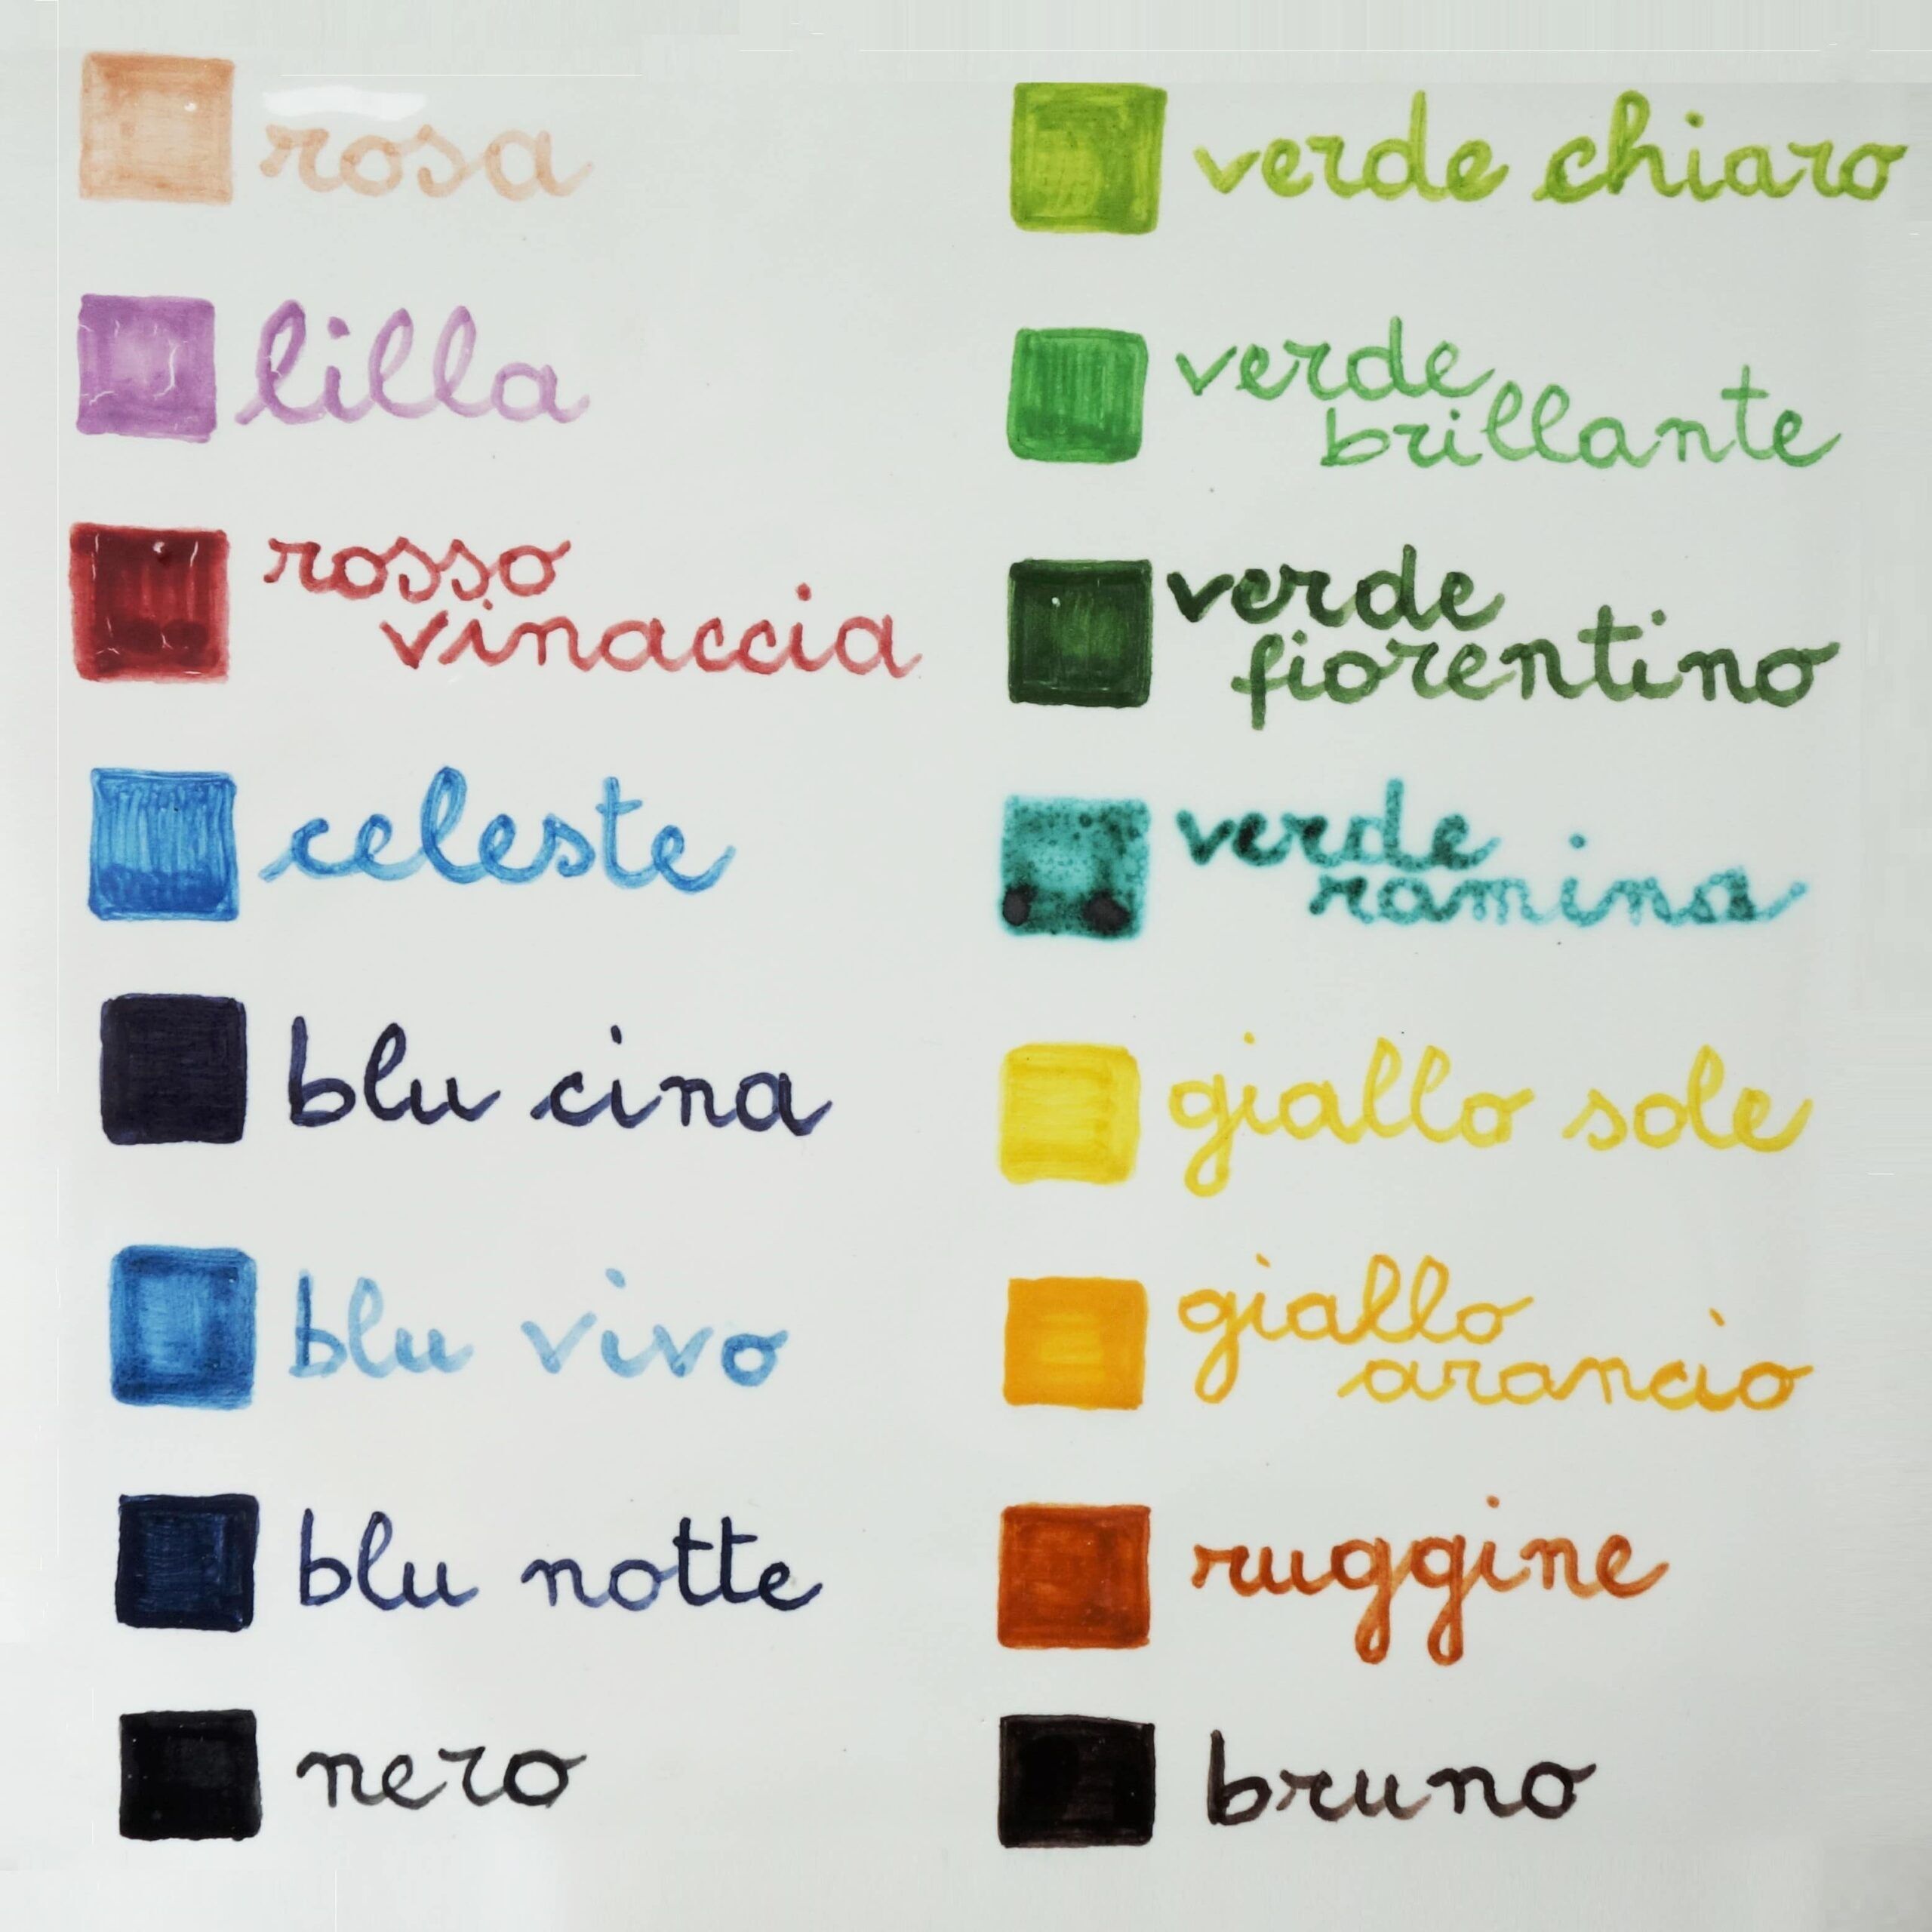 rosa
lilla
rosso
vinaccia
celeste
blu cina
blu vivo
blu notte
nero
verde chiaro
verde
brillante
verde
fiorentino
verde
ramina
giallo sole
giallo
arancio
ruggine
bruno